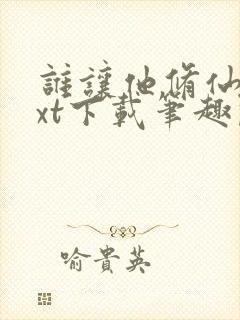 誰讓他脩仙
xt下載筆趣
喻貴英